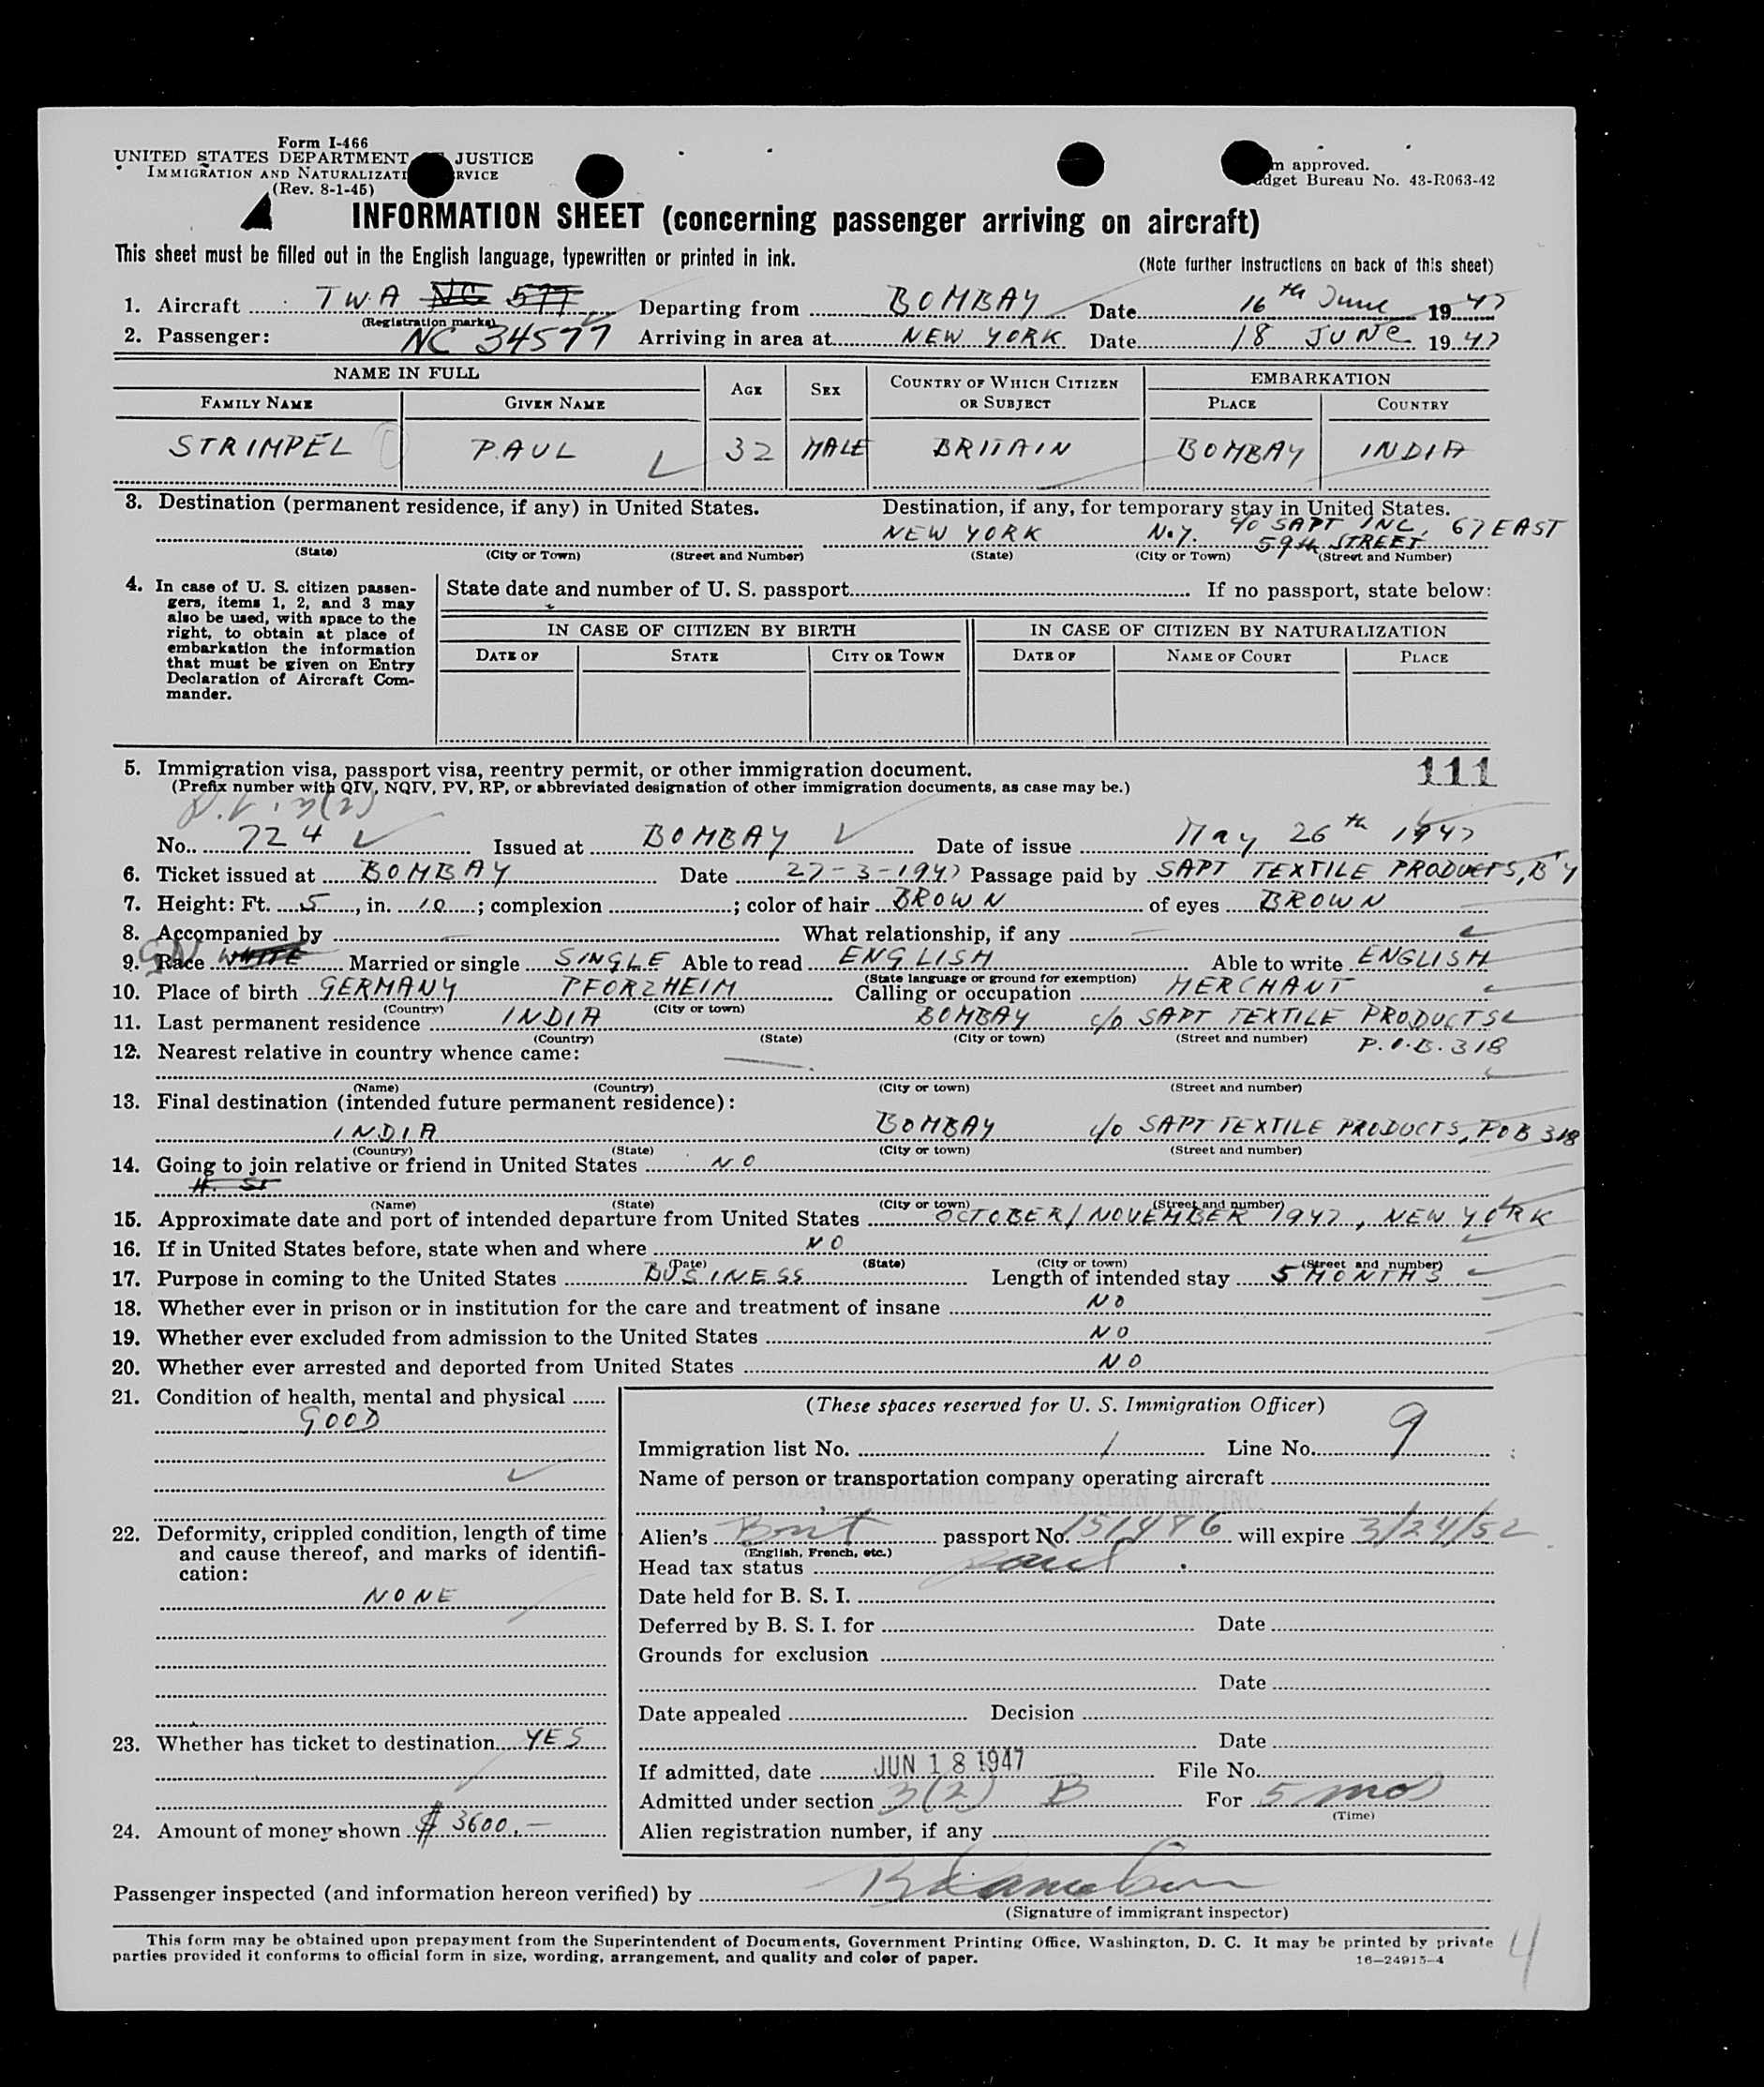 Form I-466
UNITED STATES DEPARTMENT JUSTICE
IMMIGRATION AND NATURALIZATI RVICE
(Rev. 8-1-45)
m approved.
dget Bureau No. 43-R063-42
INFORMATION SHEET (concerning passenger arriving on aircraft)
This sheet must be filled out in the English language, typewritten or printed in ink.
(Note further instructions on back of this sheet)
1. Aircraft T.W.A NC 577 Departing from BOMBAY Date 16th June 1947
(Registration marks)
2. Passenger: NC 34577 Arriving in area at NEW YORK Date 18 JUNE 1947
NAME IN FULL AGE SEX COUNTRY OF WHICH CITIZEN OR SUBJECT EMBARKATION
FAMILY NAME GIVEN NAME PLACE COUNTRY
STRIMPEL PAUL 32 MALE BRITAIN BOMBAY INDIA
3. Destination (permanent residence, if any) in United States. Destination, if any, for temporary stay in United States.
NEW YORK N.Y. c/o SAPT INC, 67 EAST
59th STREET
(State) (City or Town) (Street and Number) (State) (City or Town) (Street and Number)
4. In case of U. S. citizen passengers, items 1, 2, and 3 may also be used, with space to the right, to obtain at place of embarkation the information that must be given on Entry Declaration of Aircraft Commander.
State date and number of U. S. passport If no passport, state below:
IN CASE OF CITIZEN BY BIRTH IN CASE OF CITIZEN BY NATURALIZATION
DATE OF STATE CITY OR TOWN DATE OF NAME OF COURT PLACE
5. Immigration visa, passport visa, reentry permit, or other immigration document. 111
(Prefix number with QIV, NQIV, PV, RP, or abbreviated designation of other immigration documents, as case may be.)
3(2)
No. 724 Issued at BOMBAY Date of issue May 26th 1947
6. Ticket issued at BOMBAY Date 27-3-1947 Passage paid by SAPT TEXTILE PRODUCTS, B'Y
7. Height: Ft. 5, in. 10; complexion ; color of hair BROWN of eyes BROWN
8. Accompanied by What relationship, if any
9. Race WHITE Married or single SINGLE Able to read ENGLISH Able to write ENGLISH
(State language or ground for exemption)
10. Place of birth GERMANY PFORZHEIM Calling or occupation MERCHANT
(Country) (City or town)
11. Last permanent residence INDIA BOMBAY c/o SAPT TEXTILE PRODUCTS
(Country) (State) (City or town) (Street and number) P.O.B. 318
12. Nearest relative in country whence came:
(Name) (Country) (City or town) (Street and number)
13. Final destination (intended future permanent residence):
INDIA BOMBAY c/o SAPT TEXTILE PRODUCTS, POB 318
(Country) (State) (City or town) (Street and number)
14. Going to join relative or friend in United States NO
(Name) (State) (City or town) (Street and number)
15. Approximate date and port of intended departure from United States OCTOBER/NOVEMBER 1947, NEW YORK
16. If in United States before, state when and where NO
(Date) (State) (City or town) (Street and number)
17. Purpose in coming to the United States BUSINESS Length of intended stay 5 MONTHS
18. Whether ever in prison or in institution for the care and treatment of insane NO
19. Whether ever excluded from admission to the United States NO
20. Whether ever arrested and deported from United States NO
21. Condition of health, mental and physical
GOOD
22. Deformity, crippled condition, length of time and cause thereof, and marks of identification:
NONE
23. Whether has ticket to destination YES
24. Amount of money shown $ 3600.—
(These spaces reserved for U. S. Immigration Officer)
Immigration list No. 1 Line No. 9
Name of person or transportation company operating aircraft
TRANSCONTINENTAL & WESTERN AIR, INC.
Alien's Brit passport No. 151486 will expire 3/24/52
(English, French, etc.)
Head tax status
Date held for B. S. I.
Deferred by B. S. I. for Date
Grounds for exclusion
Date
Date appealed Decision
Date
If admitted, date JUN 18 1947 File No.
Admitted under section 3(2) B For 5 mos
(Time)
Alien registration number, if any
Passenger inspected (and information hereon verified) by
(Signature of immigrant inspector)
This form may be obtained upon prepayment from the Superintendent of Documents, Government Printing Office, Washington, D. C. It may be printed by private
parties provided it conforms to official form in size, wording, arrangement, and quality and color of paper. 16—24915-4
4